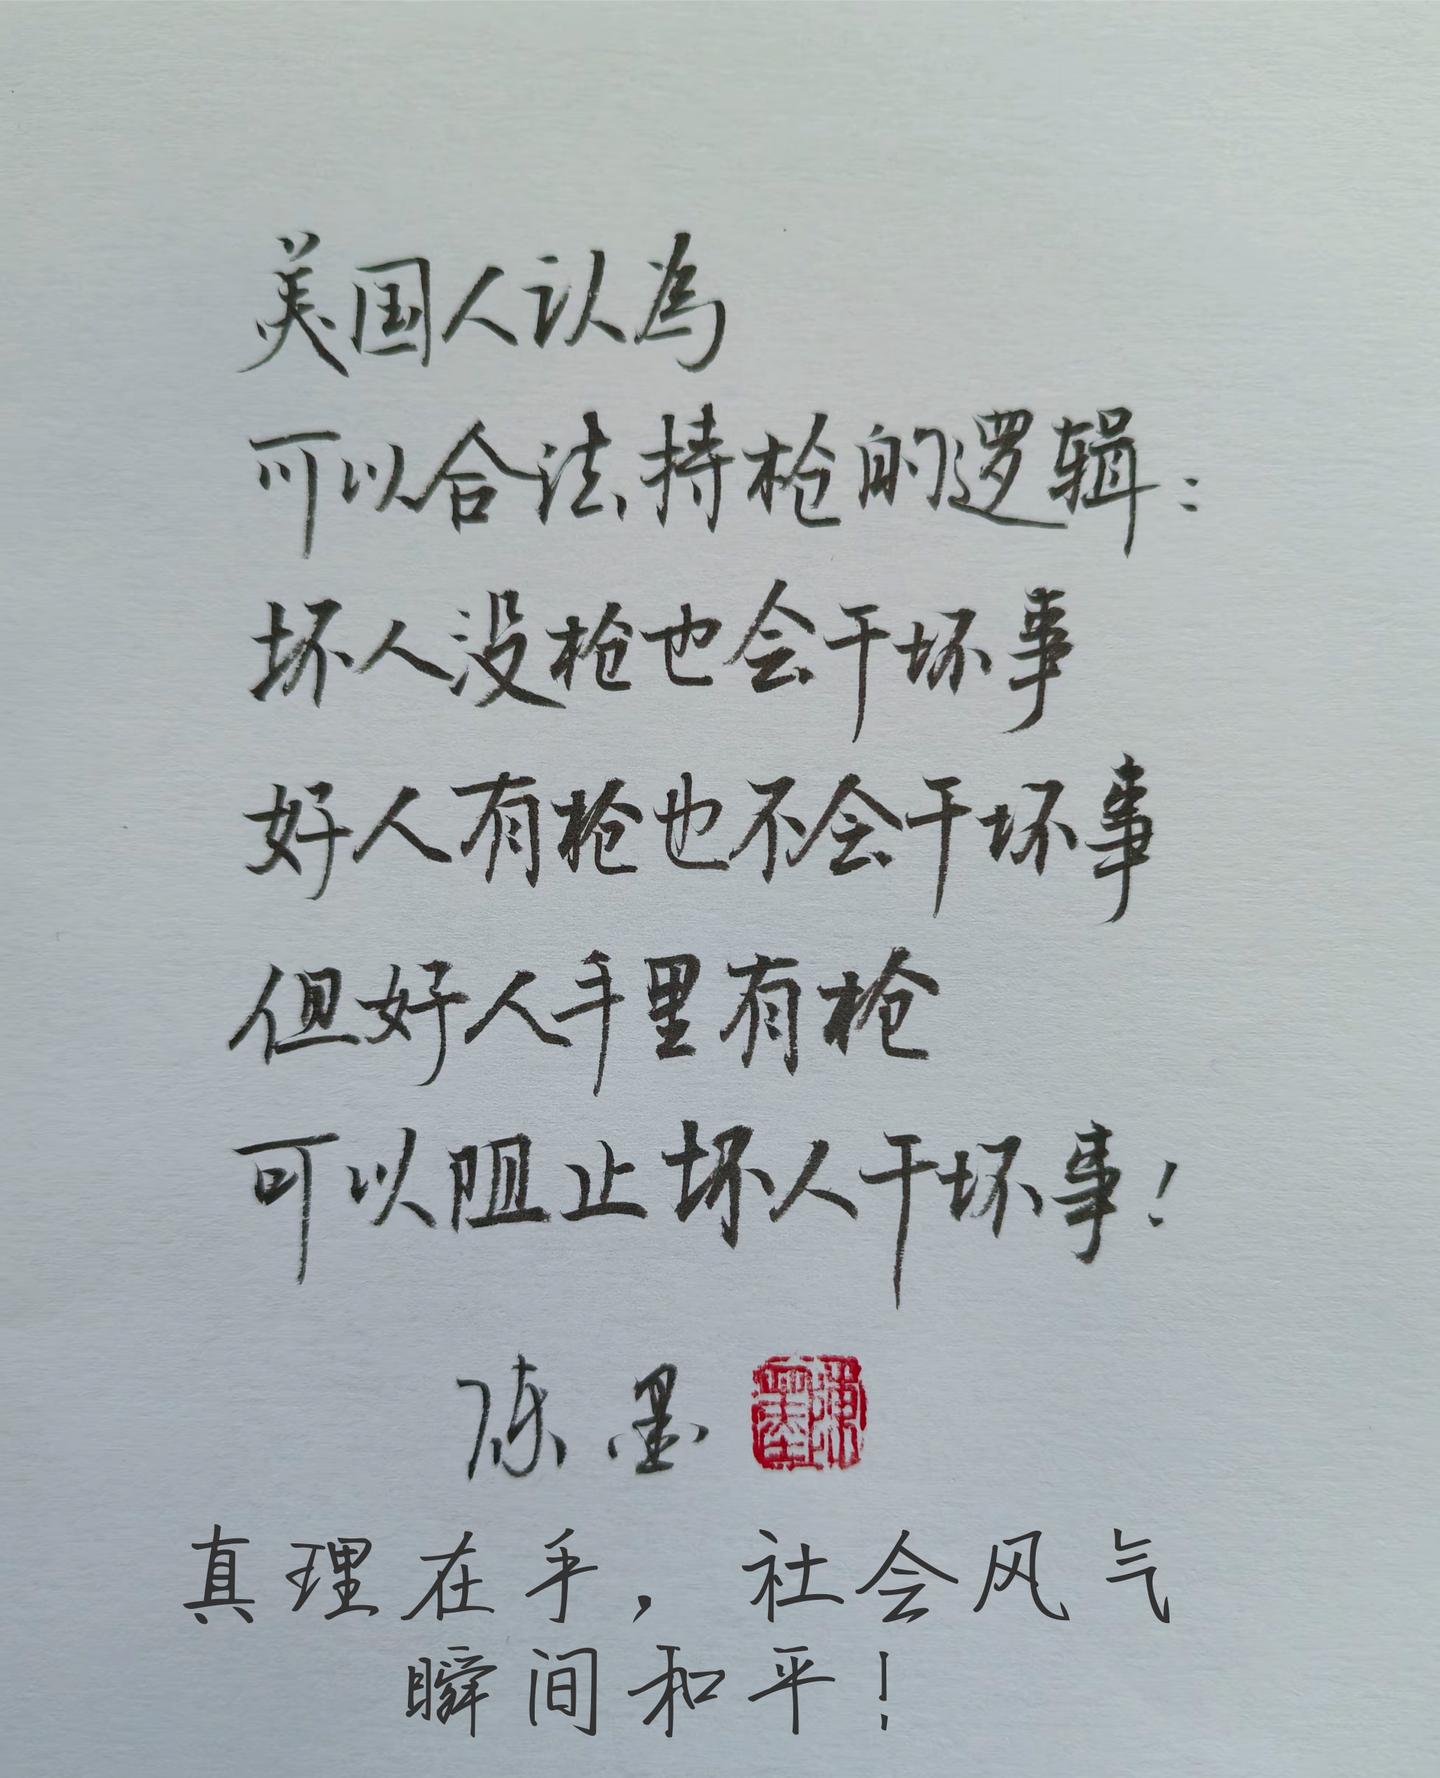 美国人认为
可以合法持枪的逻辑：
坏人没枪也会干坏事
好人有枪也不会干坏事
但好人手里有枪
可以阻止坏人干坏事！
陈墨
陈墨
真理在手，社会风气
瞬间和平！